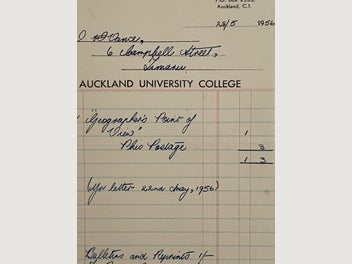 Auckland, C.1.
28/5 1956
6 Campbell Street,
Timaru
AUCKLAND UNIVERSITY COLLEGE
"Geographer's Point of
View" 1
Plus Postage 3
1 3
(Yr letter 22nd May, 1956)
Bulletins and Reprints 1/-